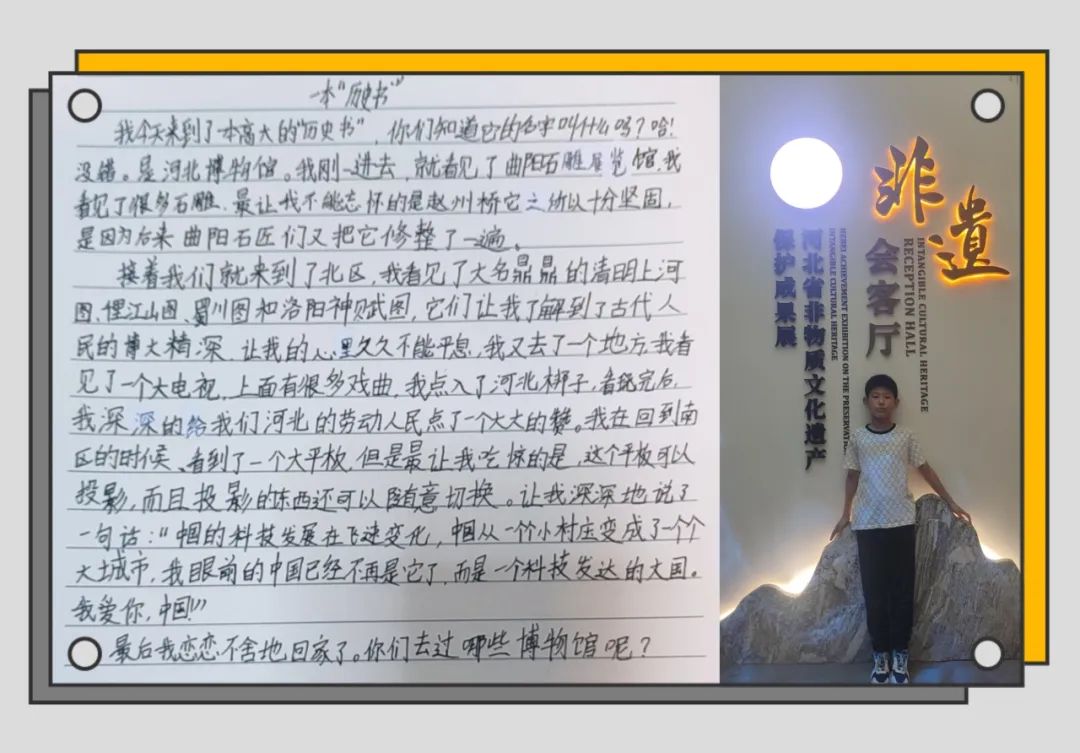 一本“历史书”
我今天来到了一本高大的“历史书”，你们知道它的名字叫什么吗？哈！
没错。是河北博物馆。我刚一进去，就看见了曲阳石雕展览馆，我
看见了很多石雕、最让我不能忘怀的是赵州桥它之所以十分坚固，
是因为后来曲阳石匠们又把它修整了一遍。
接着我们就来到了北区，我看见了大名鼎鼎的清明上河
图、江山图、蜀川图和洛阳神赋图，它们让我了解到了古代人
民的博大精深、让我的心里久久不能平息，我又去了一个地方，我看
见了一个大电视，上面有很多戏曲，我点入了河北梆子，看完后，
我深深的给我们河北的劳动人民点了一个大大的赞。我在回到南
区的时候、看到了一个大平板，但是最让我吃惊的是，这个平板可以
投影，而且投影的东西还可以随意切换。让我深深地说了
一句话：“中国的科技发展在飞速变化，中国从一个个小村庄变成了一个个
大城市，我眼前的中国已经不再是它了，而是一个科技发达的大国。
我爱你，中国！”
最后我恋恋不舍地回家了。你们去过哪些博物馆呢？
非遗
会客厅
INTANGIBLE CULTURAL HERITAGE
RECEPTION HALL
河北省非物质文化遗产
保护成果展
HEBEI ACHIEVEMENT EXHIBITION ON THE PRESERVAT
INTANGIBLE CULTURAL HERITAGE